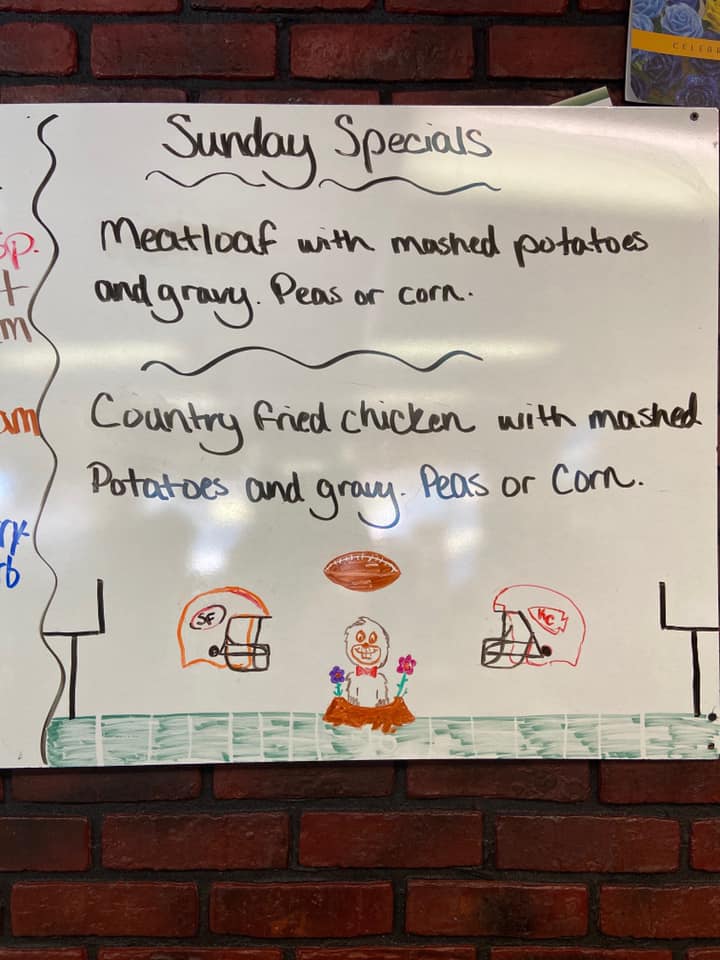 Sunday Specials
Meatloaf with mashed potatoes
and gravy. Peas or corn.
Country fried chicken with mashed
Potatoes and gravy. Peas or Corn.
SF
KC